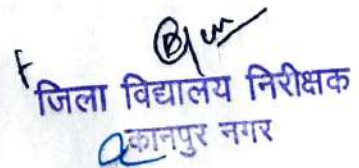 जिला विद्यालय निरीक्षक
कानपुर नगर